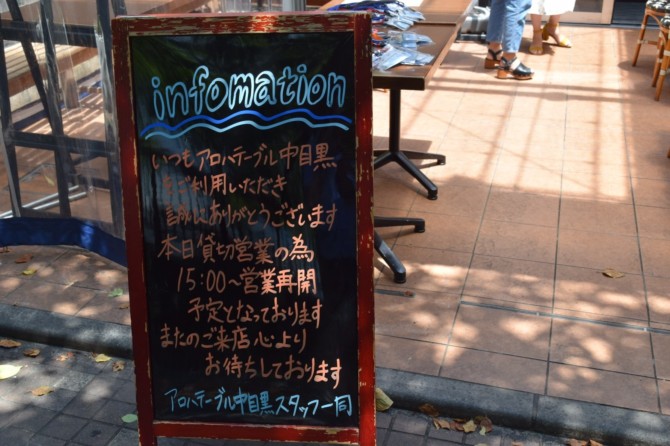 infomation
いつもアロハテーブル中目黒
をご利用いただき
誠にありがとうございます
本日貸切営業の為
15:00〜営業再開
予定となっております
またのご来店心より
お待ちしております
アロハテーブル中目黒スタッフ一同